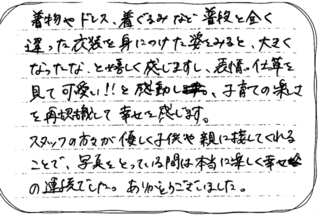 着物やドレス、着ぐるみなど普段と全く
違った衣装を身につけた姿をみると、大きく
なったな、と嬉しく感じますし、表情、仕草を
見て可愛い!!と感動し、子育ての楽しさ
を再認識して幸せを感じます。
スタッフの方々が優しく子供や親に接してくれる
ことで、写真をとっている間は本当に楽しく幸せ
の連続でした。ありがとうございました。